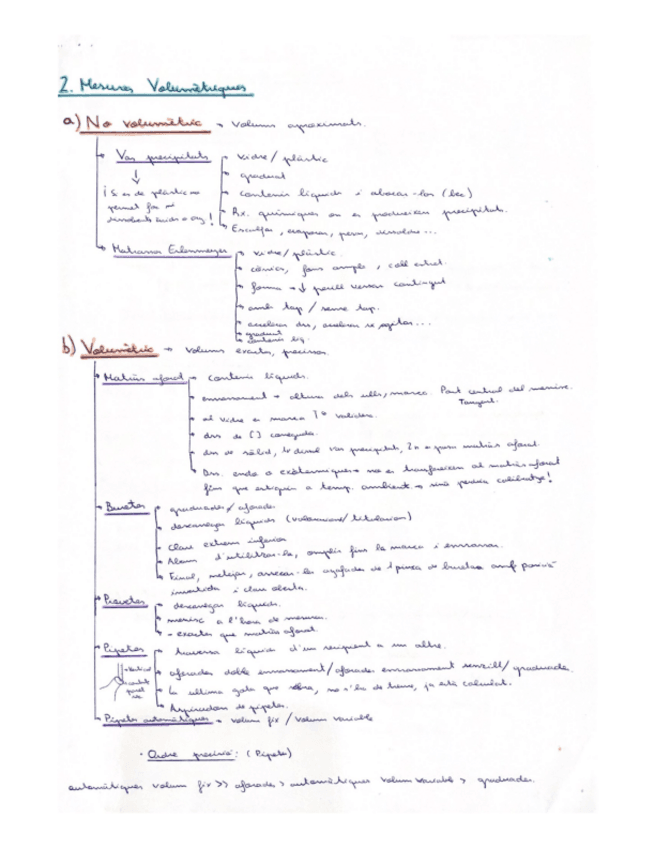 2. Mesures Volumètriques
a) No volumètric → Volums aproximats.
Vas precipitats
vidre / plàstic
graduat
contenir líquids i abocar-los (bec)
Rx. químiques on es produeixen precipitats.
Escalfar, evaporar, pesar, dissoldre...
↓
¡Si és de plàstic no
permet fer
Matrassos Erlenmeyer
vidre / plàstic.
cònics, fons ample, coll estret.
forma → ↓ perill vessar contingut
amb tap / sense tap.
graduat
contenir líq.
b) Volumètric → volums exactes, precisos.
Matràs aforat → contenir líquids.
enrasament → altura dels ulls, marca. Part central del menisc.
Tangent.
al vidre es marca Tª validesa.
dns de [ ] coneguda.
dns de sòlid, vas precipitats, 2n es passa matràs aforat.
Dns. endo o exotèrmiques → no es transfereixen al matràs aforat
fins que estiguin a temp. ambient → sinó perdria calibratge!
Buretes
graduades / aforades
descarregar líquids (volumetries / titulacions)
Clau extrem inferior
Abans d'utilitzar-la, omplir fins la marca i enrasar.
Final, netejar, assecar-la agafades de 1 pinça de buretes amb posició
invertida i clau oberta.
Provetes
descarregar líquids.
menisc a l'hora de mesurar.
- exactes que matràs aforat.
Pipetes
líquids d'un recipient a un altre.
aforades doble enrasament / aforades enrasament senzill / graduades.
La última gota que no s'ha de treure, ja està calculat.
Aspiradors de pipetes.
Pipetes automàtiques → volum fix / volum variable
· Ordre precisió: (Pipetes)
automàtiques volum fix >> aforades > automàtiques volum variable > graduades.